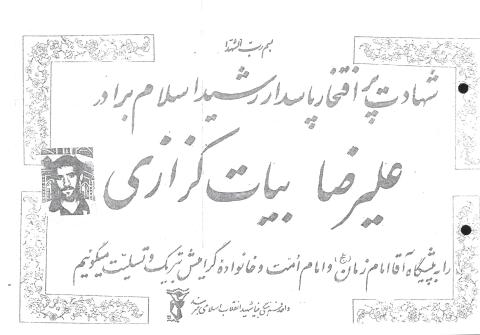 بسم رب الشهدا
شهادت پر افتخار پاسدار رشید اسلام برادر
علیرضا بیات کزازی
را به پیشگاه آقا امام زمان (عج) و امام امت و خانواده گرامیش تبریک و تسلیت میگوئیم
واحد بنیاد شهید انقلاب اسلامی